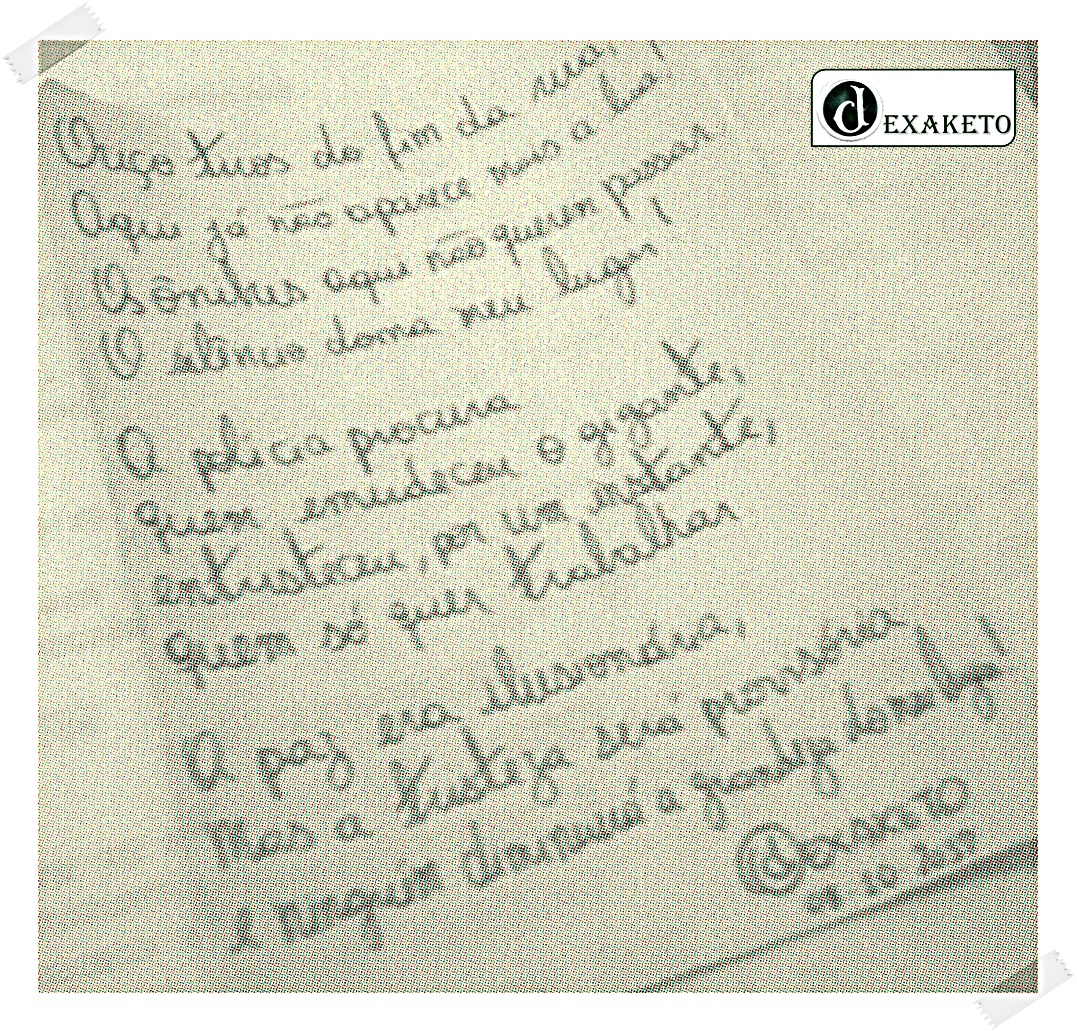 DEXAKETO
Ouço tiros do fim da rua,
Aqui já não aparece mais a lua.
Os ônibus aqui não querem passar
O silêncio doma meu lugar,
A polícia procura
quem emudeceu o gigante,
entristeceu, por um instante,
quem só quer trabalhar
A paz era ilusionária,
Mas a tristeza será
e ninguém a
DEXAKETO